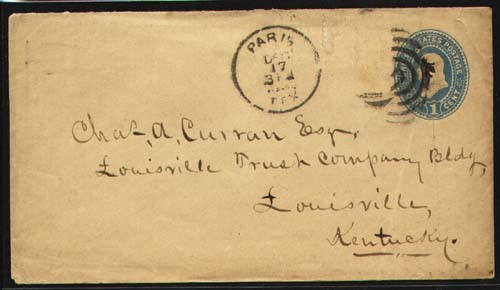 PARIS
DEC
17
TEX
STATES POSTAGE
1 CENT
Chas. A. Curran Esq.,
Louisville Trust Company Bldg,
Louisville,
Kentucky.